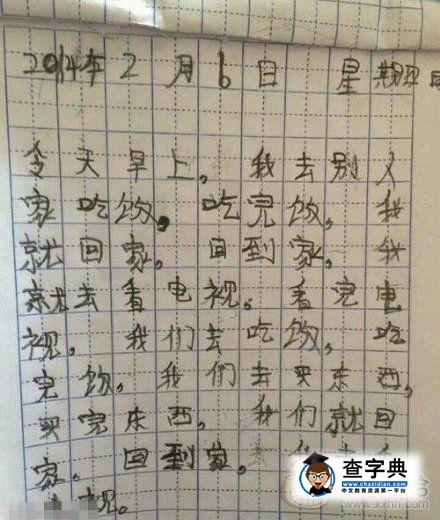 2014年2月6日 星期四
今天早上。我去别人
家吃饭。吃完饭。我
就回家。回到家。我
就去看电视。看完电
视。我们去吃饭。吃
完饭。我们去买东西。
买完东西。我们就回
家。回到家。
视。
查字典
www.chazidian.com
中文教育资源第一平台